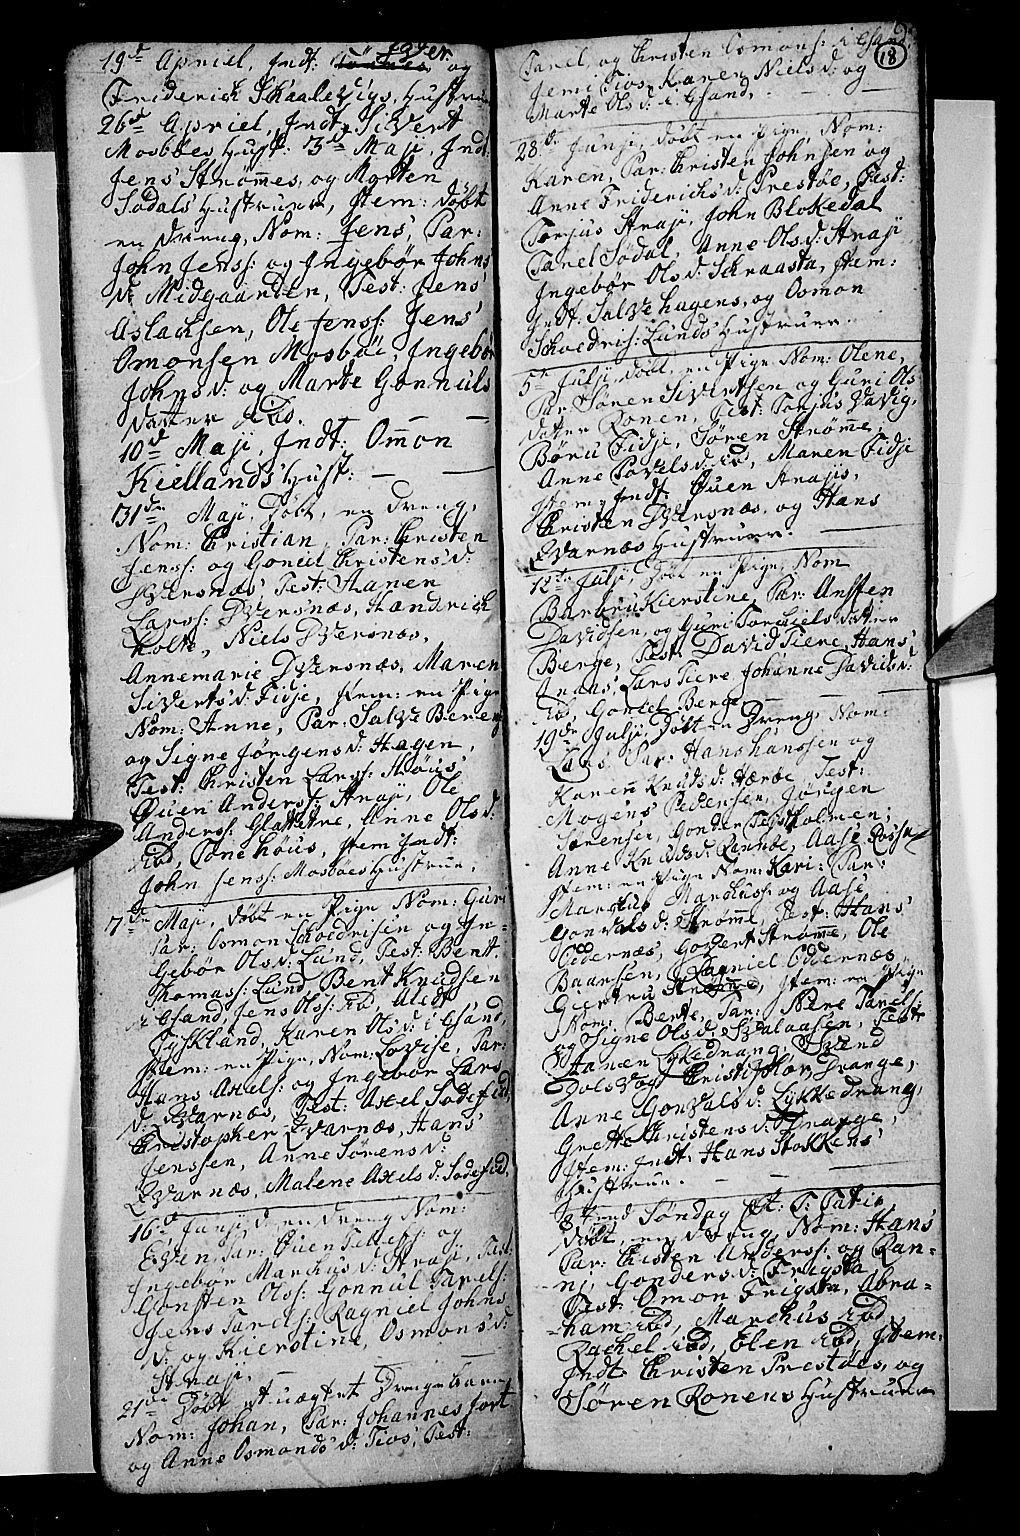 19de Apriel, Indt: Iver og
Friderich Skaalevigs, Hustruer
26de Apriel, Indt: Sivert
Mosböes Hust: 3de Maji, Indt:
Jens Strømmes, og Morten
Södals Hustruer, Item: döbt
en dreng, Nom: Jens, Par:
John Jenss: og Ingebør Johns
d: Midgaarden, Test: Jens
Aslachsen, Ole Jenss: Jens
Omonsen Mosböe, Ingebør
Johnsd: og Marte Gonnuls
datter ibd.
10de Maji, Indt: Omon
Kiellands Hust: —
31de Maji, Döbt, en dreng,
Nom: Christian, Par: Christen
Jenss: og Goneel Christensd:
Dversnæs, Test: Hanen
Larss: Dversnæs, Hændrich
Holte, Niels Dversnæs,
Annemarie Dversnæs, Maren
Sivertsd: Fidje, Item: en Pige
Nom: Anne, Par: Salve Bereng
og Signe Jørgensd: Hagen,
Test: Christen Larss: Höus,
Ouen Anderss: Straji, Ole
Anderss: Glattetre, Anne Olsd:
ibd, Tone Höus, Item Indt:
John Jenss: Mosböes Hustrue,
7de Maji, döbt en Pige Nom: Guri
Par: Osmon Schoedrisen og In-
gebør Olsd: Lund, Test: Bent
Thomass: Lund Bent Knudsen
i Csand, Jens Olss: ibd, Aleth
Tyskland, Karen Olsd: i Csand,
Item: en Pige, Nom: Lovise, Par:
Hans Axels: og Ingebør Lars
d: Qvarnæs, Test: Axel Södefied,
Christopher Qvarnæs, Hans
Jenssen, Anne Sørensd:
Qvarnæs, Malene Axelsd: Södefied.
16de Junji, d: en dreng Nom:
Even, Par: Ouen Tellefs: og
Ingebør Marchusd: Straji, Test:
Gonsten Olss: Gonnul Tarels:
Jens Tarels: Ragniel Johns
d: og Kierstine, Osmonsd:
Straji,
21de Döbt et uægte Drengebarn
Nom: Johan, Par: Johannes Jort
og Anne Osmondsd: Tios, Test:
18
Tarel, og Christen Osmons: i Csand,
Jemi Tios, Karen Nielsd: og
Marte Olsd: i Csand,
28de Junji, döbt en Pige, Nom:
Karen, Par: Christen Johnsen og
Anne Friderichsd: Prestöe, Test:
Torjus Straji, John Blekedal
Tarel Södal, Anne Olsd: Straji
Ingebør Olsd: Schraasta, Item:
Indt: Salve Hagens, og Osmon
Schoedris: Lunds Hustruer.
5te Julji, Döbt, en Pige Nom: Olene,
Par: Søren Sivertsen og Guri Ols
datter Ronen, Test: Torjus Vavig,
Børu Fidji, Søren Strøme,
Anne Povelsd: ibd, Maren Fidje
Item: Indt: Ouen Strajis,
Christen Dversnæs, og Hans
Qvarnæs Hustruer.
12te Julji, Döbt en Pige, Nom
Barbru Kierstine, Par: Ansten
Davidsen, og Guri Torkielsdatter
Berge, Test: David Tiere, Hans
Lars Tiere Johanne Davidsd:
ibd, Goneel Berge —
19de Julji, Döbt en Dreng, Nom:
Lars, Par: Hans Hanssen og
Karen Knudsd: Hærbe, Test:
Mogens Pedersen, Jørgen
Sørensen, Gonder
Anne Knudsd: Aase
Item: en Pige Nom: Kari: Par:
Marchus Marchuss: og Aase
Gonvalsd: Strømme, Test: Hans
Odernæs, Govert Strømme, Ole
Baarsen, Ragniel Odernæs,
Giertru Strømme, Item: en Pige
Nom: Berte, Par: Nere Tarels:
og Signe Olsd: Test:
Hanen Lykkedrang, Svend
og Christopher Drange,
Anne Gonvalsd: Lykkedrang,
Grette Christensd: Drange,
Item: Indt: Hans Stokkens
Hustrue. —
8tende Söndag Et: T: Tatis
Döbt, en dreng, Nom: Hans
Par: Christen Anderss: og Ran-
ni, Gondersd: Frigsta
Test: Omon Frigsta, Abra-
ham ibd, Marchus ibd,
Rachel ibd, Elen ibd, Item:
Indt: Christen Prestöes, og
Søren Ronens Hustruer